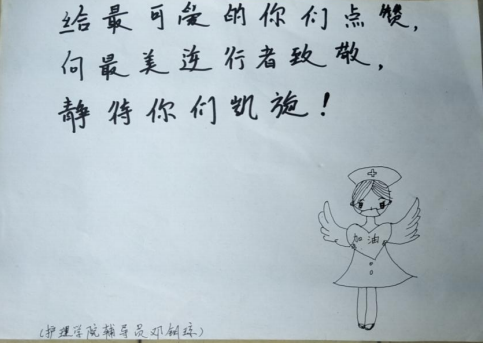 给最可爱的你们点赞,
向最美逆行者致敬,
静待你们凯旋!
加油
(护理学院辅导员邓